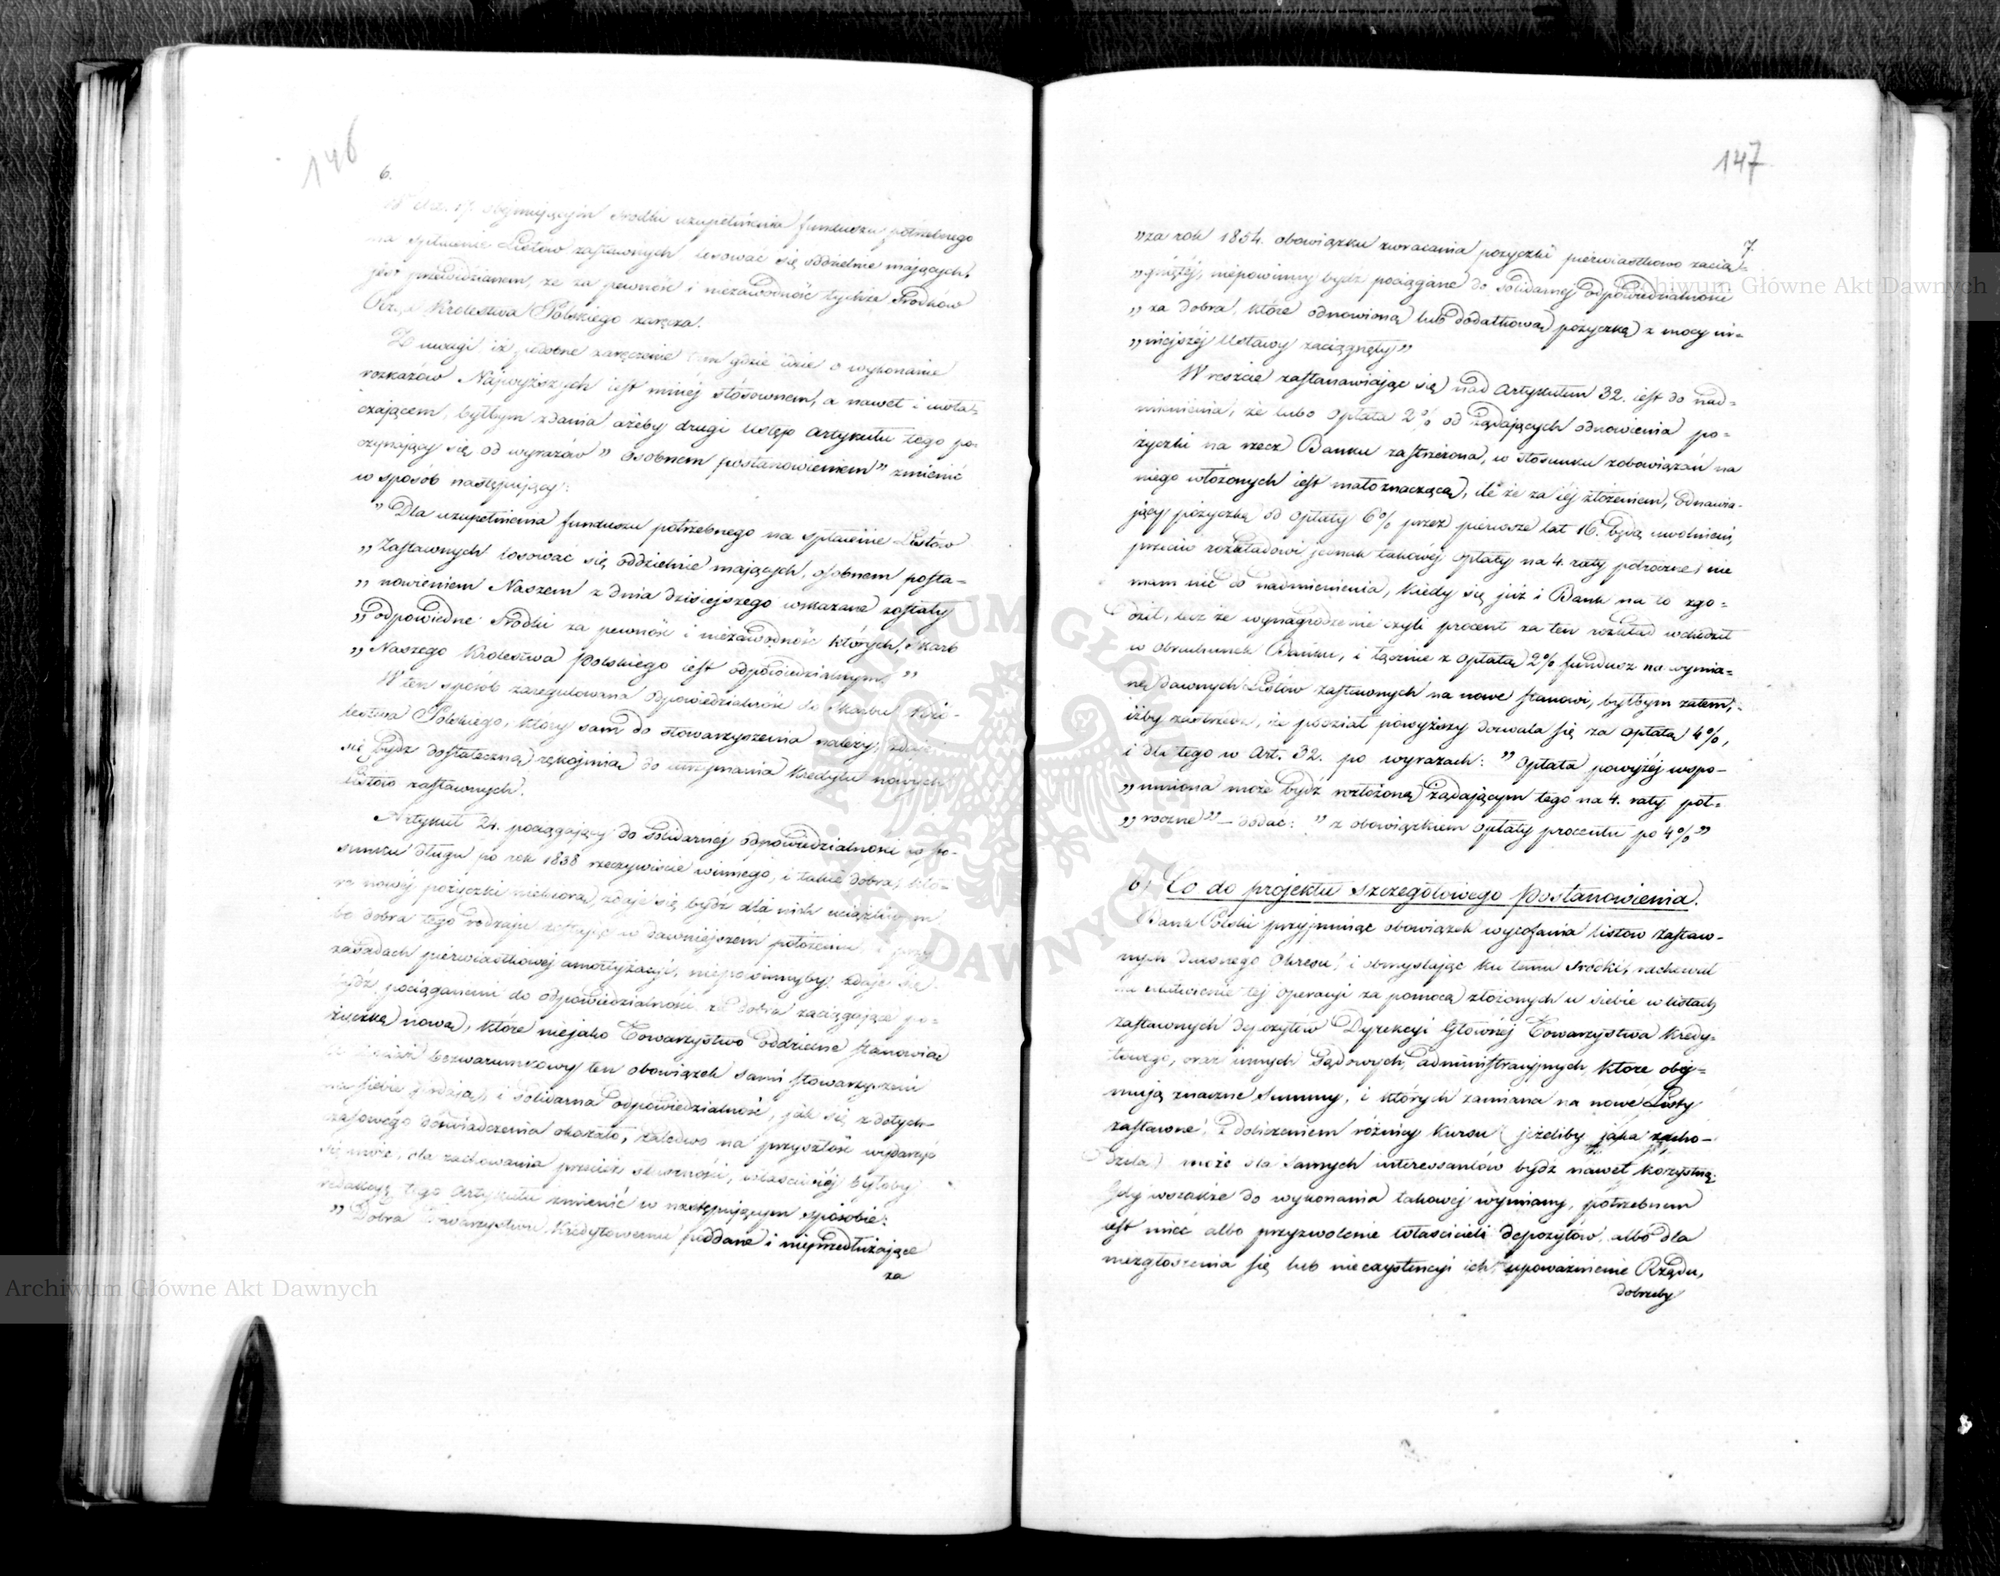 146
6.
W Art. 17. obejmującym środki uzupełnienia funduszu potrzebnego
na spłacenie Listów zastawnych losować się oddzielnie mających,
jest przewidzianem, że za pewność i niezawodność tychże środków
Królestwa Polskiego zaręcza.
Z uwagi iż podobne zaręczenie tam gdzie idzie o wykonanie
rozkazów Najwyższych jest mniéj stósownem, a nawet i uwła-
czającem, byłbym zdania ażeby drugi ustęp artykułu tego po-
czynający się od wyrazów „osobnem postanowieniem” zmienić
w sposób następujący:
„Dla uzupełnienia funduszu potrzebnego na spłacenie Listów
„Zastawnych losować się oddzielnie mających, osobnem posta-
„nowieniem Naszem z dnia dzisiejszego wskazane zostały
„odpowiedne środki za pewność i niezawodność których, Skarb
„Naszego Królestwa Polskiego jest odpowiedzialnym.”
W ten sposób zaregulowana odpowiedzialność do Skarbu Kró-
lestwa Polskiego, który sam do stowarzyszenia należy, zdaje
się bydź dostateczną rękojmią do utrzymania kredytu nowych
Listów zastawnych.
Artykuł 24. pociągający do solidarnéj odpowiedzialności w sto-
sunku długu po rok 1838 rzeczywiście winnego, i takie dobra, któ-
re nowéj pożyczki niebiorą, zdaje się bydź dla nich uciążliwym
bo dobra tego rodzaju zostając w dawniejszem położeniu i przy
zasadach pierwiastkowéj amortyzacyi, niepowinnyby, zdaje się
bydź pociąganemi do odpowiedzialności za dobra zaciągające po-
życzkę nową, które niejako Towarzystwo oddzielne stanowiąc
bezwarunkowy ten obowiązek sami stowarzyszeni
na siebie i solidarna odpowiedzialność, jak się z dotych-
czasowego doświadczenia okazało, zaledwo na przyszłość wydarzyć
się może, dla zachowania przecież słuszności, właściwiéj byłoby
redakcyę tego artykułu zmienić w następującym sposobie:
„Dobra Towarzystwu Kredytowemu poddane i nieprzedłużające
za
147
7.
„za rok 1854. obowiązku zwracania pożyczki pierwiastkowo zacią-
„gniętéj, niepowinny bydź pociągane do solidarnej odpowiedzialności
„za dobra, które odnowioną lub dodatkową pożyczkę z mocy ni-
„niejszéj Ustawy zaciągnęły”
Wreszcie zastanawiając się nad artykułem 32. jest do nad-
mienienia, że lubo opłata 2% od żądających odnowienia po-
życzki na rzecz Banku zastrzeżona, w stosunku zobowiązań na
niego włożonych jest małoznaczącą, ile że za jéj złożeniem, odnawia-
jący pożyczkę od opłaty 6% przez pierwsze lat 16. będą uwolnieni,
przeciw rozkładowi jednak takowéj opłaty na 4. raty półroczne, nie
mam nic do nadmienienia, kiedy się już i Bank na to zgo-
dził, lecz że wynagrodzenie czyli procent za ten rozkład wchodził
w obrachunek Banku, i łącznie z opłatą 2% fundusz na wymia-
nę dawnych Listów zastawnych na nowe stanowi, byłbym zatem,
iżby zastrzedz, że podział powyższy dozwala się za opłatą 4%,
i dla tego w Art. 32. po wyrazach: „opłata powyżéj wspo-
„mniona może bydź rozłożoną żądającym tego na 4. raty pół-
„roczne” – dodać: „z obowiązkiem opłaty procentu po 4%”
b) Co do projektu szczegółowego Postanowienia.
Bank Polski przyjmując obowiązek wycofania listów zastaw-
nych dawnego Okresu, i obmyślając ku temu środki, rachował
na ułatwienie téj operacyi za pomocą złożonych u siebie w listach
zastawnych depozytów Dyrekcyi Głównéj Towarzystwa Kredy-
towego, oraz innych Sądowych, administracyjnych, które obej-
mują znaczne summy, i których zamiana na nowe Listy
zastawne, z doliczeniem różnicy kursu jeżeliby jaka zacho-
dziła, może dla samych interessantów bydź nawet korzystną;
Gdy wszakże do wykonania takowéj wymiany, potrzebnem
jest mieć albo przyzwolenie właścicieli depozytów, albo dla
niezgłoszenia się lub nieexystencyi ich, upoważnienie Rządu,
dobrzeby
ARCHIWUM GŁÓWNE AKT DAWNYCH
Archiwum Główne Akt Dawnych
Archiwum Główne Akt Dawnych